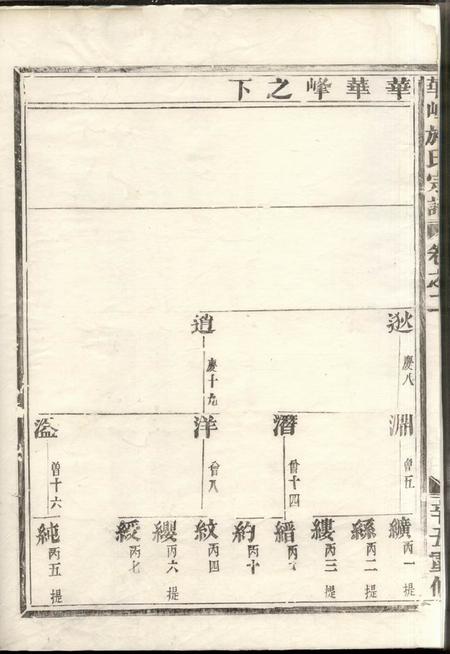 華峰施氏宗譜 卷之二
辛丑重修
華華峰之下
逖 慶八
逍 慶十九
淵 曾五
潛 曾十四
洋 曾八
濫 曾十六
纊 丙一 提
緜 丙二 提
縷 丙三 提
縉
約 丙十
紋 丙四
纓 丙六 提
綬 丙七
純 丙五 提